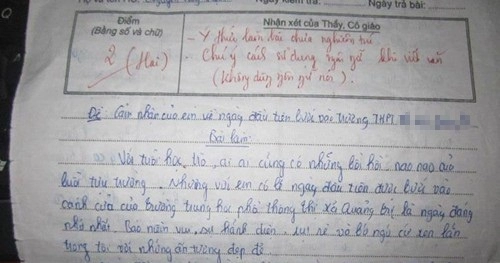 Ngày kiểm tra: Ngày trả bài:
Điểm
(Bằng số và chữ)
Nhận xét của Thầy, Cô giáo
2 (Hai)
- Ý thức làm bài chưa nghiêm túc
- Chú ý cách sử dụng ngôn ngữ khi viết văn
(không dùng ngôn ngữ nói).
Đề: Cảm nhận của em về ngày đầu tiên bước vào trường THPT
Bài làm:
Với tuổi học trò, ai ai cũng có những bồi hồi, nao nao của
buổi tựu trường. Nhưng với em có lẽ ngày đầu tiên được bước vào
cánh cửa của trường trung học phổ thông thị xã Quảng Trị là ngày đáng
nhớ nhất. Bao niềm vui, sự hãnh diện, rụt rè và bỡ ngỡ cứ xen lẫn
trong tôi với những ấn tượng đẹp đẽ